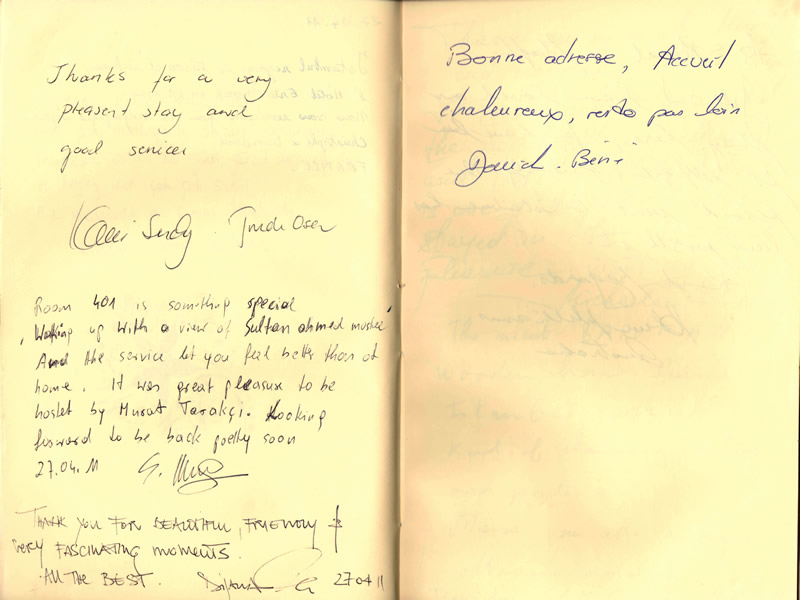 Thanks for a very
pleasent stay and
good services
Room 401 is something special
Waking up with a view of Sultan ahmed
And the service let you feel better than at
home. It was great pleasure to be
hostet by Murat Tarakçi. Looking
forward to be back pretty soon
27.04.11
THANK YOU FOR BEAUTIFUL, FRIENDLY &
VERY FASCINATING MOMENTS.
ALL THE BEST. 27 04 11
Bonne adresse, Accueil
chaleureux, resto pas loin